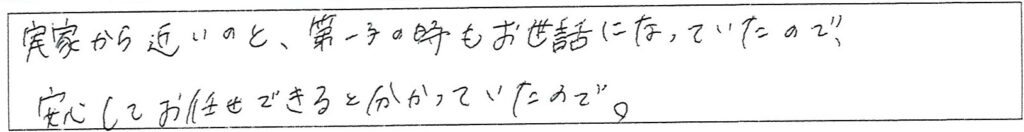 実家から近いのと、第一子の時もお世話になっていたので、
安心してお任せできると分かっていたので。